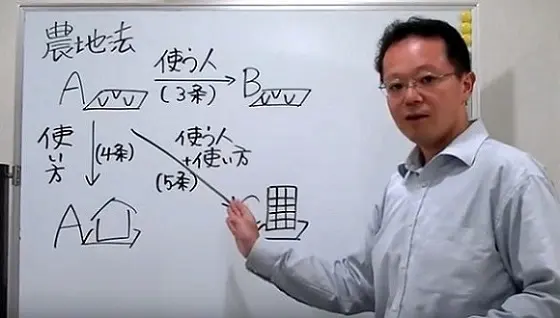 農地法
A 使う人 B
(3条)
使い方 (4条) 使う人
+使い方
(5条)
A